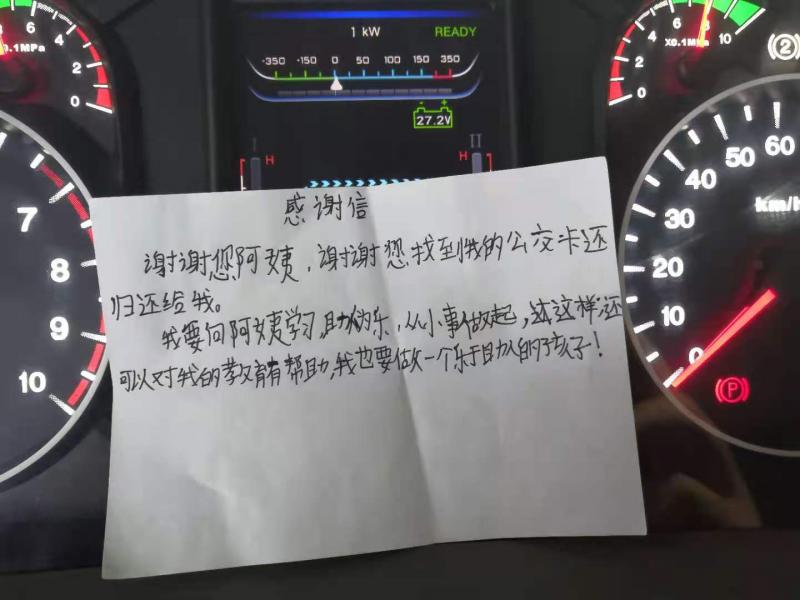 1 kW
READY
-350 -150 0 50 100 150 350
27.2V
I
II
H
H
0
2
4
6
8
X0.1MPa
0
2
4
6
8
10
X0.1MPa
7
8
9
10
0
10
20
30
40
50
60
km/h
P
2
感谢信
谢谢您阿姨，谢谢您找到我的公交卡还
归还给我。
我要向阿姨学习，助人为乐，从小事做起，这样，还
可以对我的教育有帮助，我也要做一个乐于助人的孩子！